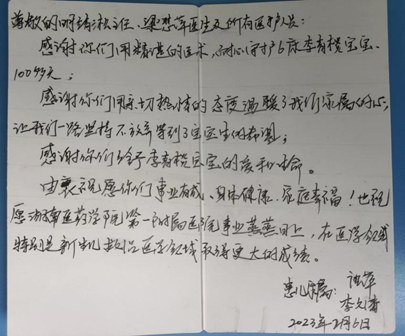 尊敬的明靖淞主任、梁思萍医生及所有医护人员:
感谢你们用精湛的医术,耐心守护6床李青 宝宝
100多天;
感谢你们用亲切热情的态度温暖了我们家属的心,
让我们一路坚持不放弃等到了宝宝生的希望;
感谢你们给予李青 宝宝的后 生命。
由衷祝愿你们事业有成、身体健康、家庭幸福!也祝
愿湖南医药学院第一附属医院事业蒸蒸日上,在医学领域
特别是新生儿 医学领域取得更大的成绩。
患儿家属:
李
2023年2月6日